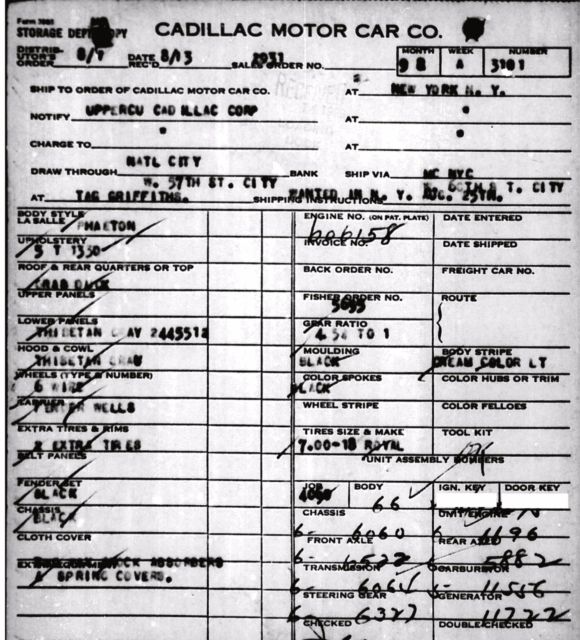 Form 7001
STORAGE DEPT COPY
CADILLAC MOTOR CAR CO.
DISTRIBUTOR'S ORDER 8/7 DATE REC'D 8/13 SALES ORDER NO. 2931
MONTH WEEK NUMBER
9 8 A 3101
SHIP TO ORDER OF CADILLAC MOTOR CAR CO. AT NEW YORK N. Y.
NOTIFY UPPERCU CADILLAC CORP AT
CHARGE TO AT
DRAW THROUGH NATL CITY BANK SHIP VIA MC NYC
W. 57TH ST. CITY T. CITY
AT TAG GRIFFITHS. SHIPPING INSTRUCTIONS WANTED IN N. Y. AUG. 25TH.
BODY STYLE LA SALLE PHAETON
UPHOLSTERY 5 T 1330
ROOF & REAR QUARTERS OR TOP
UPPER PANELS
LOWER PANELS
THIBETAN GRAY 2445512
HOOD & COWL
THIBETAN GRAY
WHEELS (TYPE & NUMBER)
6 WIRE
CARRIER
FENDER WELLS
EXTRA TIRES & RIMS
2 EXTRA TIRES
BELT PANELS
FENDER SET
BLACK
CHASSIS
BLACK
CLOTH COVER
EXTRA EQUIPMENT SHOCK ABSORBERS
& SPRING COVERS.
ENGINE NO. (ON PAT. PLATE)
606158
INVOICE NO.
BACK ORDER NO.
FISHER ORDER NO.
GEAR RATIO
4.54 TO 1
MOULDING
BLACK
COLOR SPOKES
BLACK
WHEEL STRIPE
TIRES SIZE & MAKE
7.00-18 ROYAL
DATE ENTERED
DATE SHIPPED
FREIGHT CAR NO.
ROUTE
BODY STRIPE
CREAM COLOR LT
COLOR HUBS OR TRIM
COLOR FELLOES
TOOL KIT
UNIT ASSEMBLY NUMBERS
JOB BODY IGN. KEY DOOR KEY
66
CHASSIS UNIT/ENGINE
6- 6060 1196
FRONT AXLE REAR AXLE
5882
TRANSMISSION CARBURETOR
6- 11556
STEERING GEAR GENERATOR
6- 6327 11722
CHECKED DOUBLE CHECKED